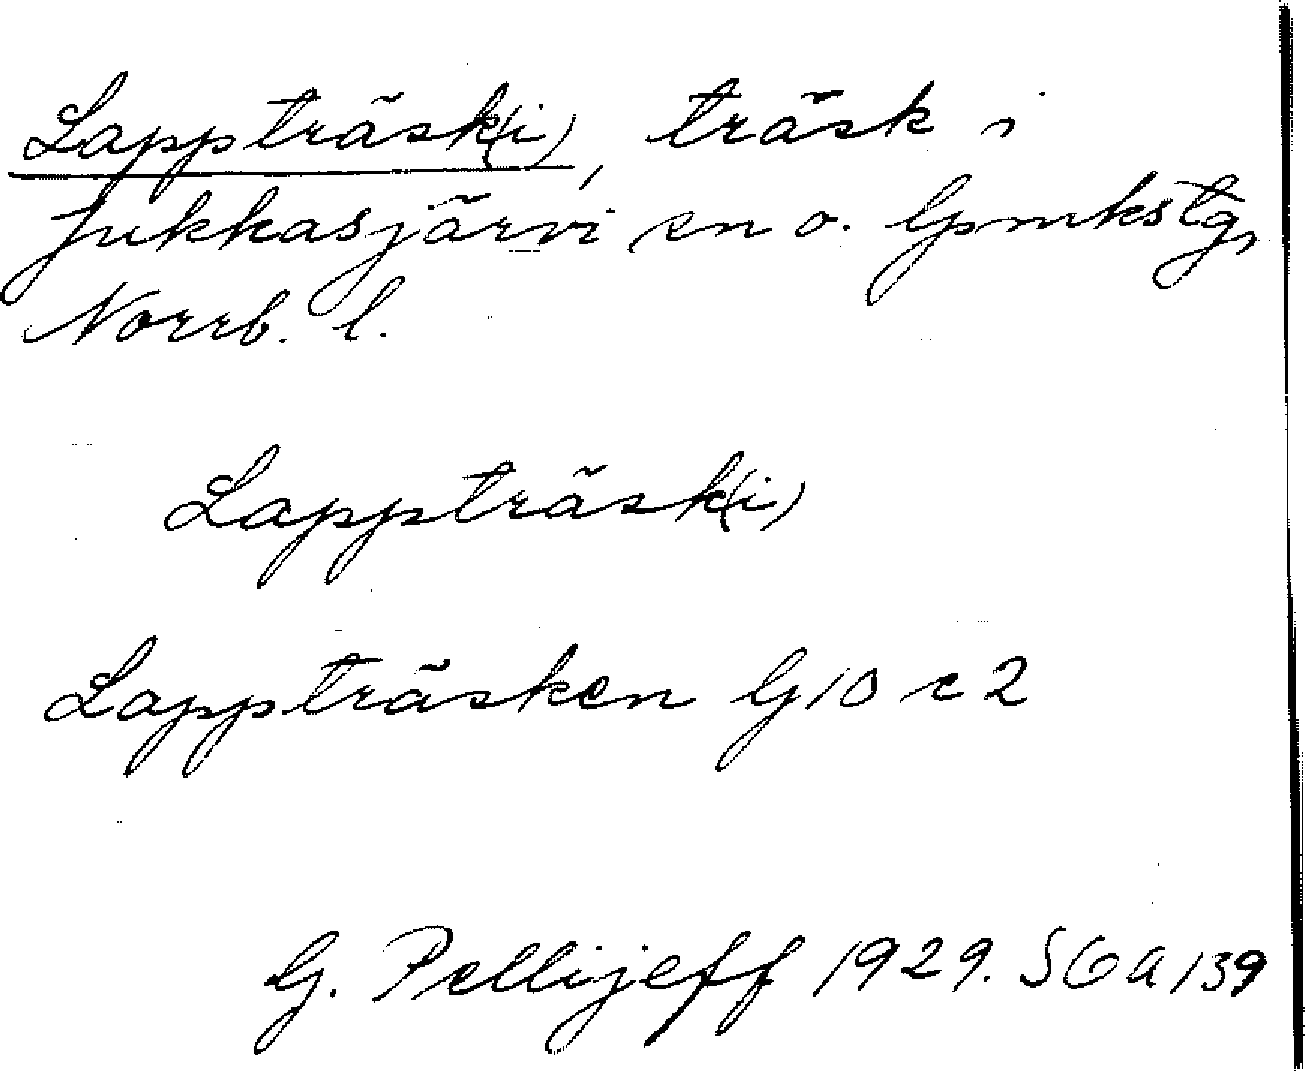 Lappträsk(i), träsk i
Jukkasjärvi sn o. lpmkstg,
Norrb. l.
Lappträsk(i)
Lappträsken G 10 c 2
G. Pellijeff 1929. SGA 139